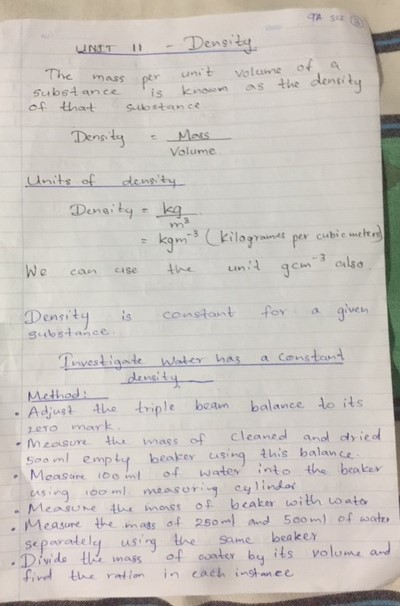 UNIT 11 - Density
The mass per unit volume of a
substance is known as the density
of that substance
Density = Mass
Volume
Units of density
Density = kg
m³
= kgm⁻³ (kilogrames per cubic meters)
We can use the unit gcm⁻³ also.
Density is constant for a given
substance.
Investigate Water has a constant
density
Method:
• Adjust the triple beam balance to its
zero mark.
• Measure the mass of cleaned and dried
500ml empty beaker using this balance.
• Measure 100 ml of water into the beaker
using 100ml measuring cylinder
• Measure the mass of beaker with water
• Measure the mass of 250ml and 500ml of water
separately using the same beaker
• Divide the mass of water by its volume and
find the ration in each instance